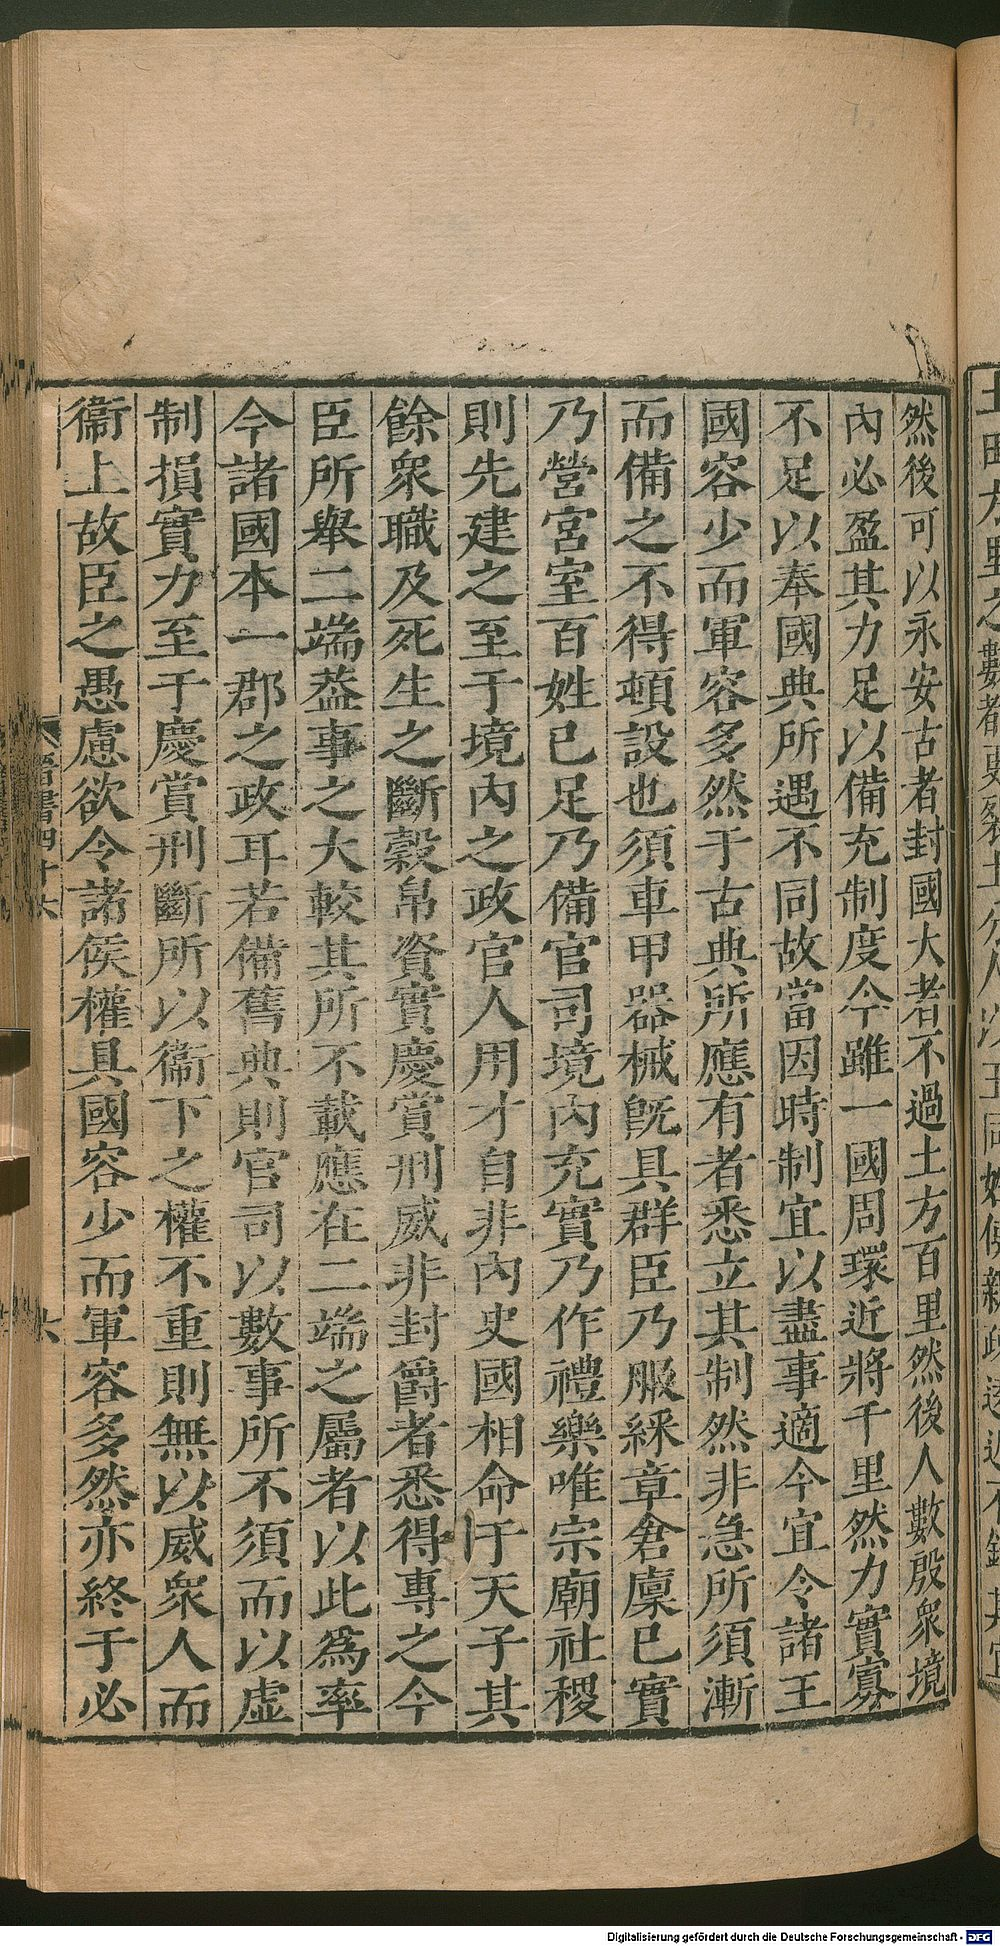 然後可以永安古者封國大者不過土方百里然後人數殷衆境
內必盈其力足以備充制度今雖一國周環近將千里然力實寡
不足以奉國典所遇不同故當因時制宜以盡事適今宜令諸王
國容少而軍容多然于古典所應有者悉立其制然非急所須漸
而備之不得頓設也須車甲器械既具群臣乃服綵章倉廩已實
乃營宮室百姓已足乃備官司境內充實乃作禮樂唯宗廟社稷
則先建之至于境內之政官人用才自非內史國相命于天子其
餘衆職及死生之斷穀帛資實慶賞刑威非封爵者悉得專之今
臣所舉二端葢事之大較其所不載應在二端之屬者以此爲率
今諸國本一郡之政耳若備舊典則官司以數事所不須而以虛
制損實力至于慶賞刑斷所以衞下之權不重則無以威衆人而
衞上故臣之愚慮欲令諸侯權具國容少而軍容多然亦終于必
晉書四十六
六
Digitalisierung gefördert durch die Deutsche Forschungsgemeinschaft - DFG